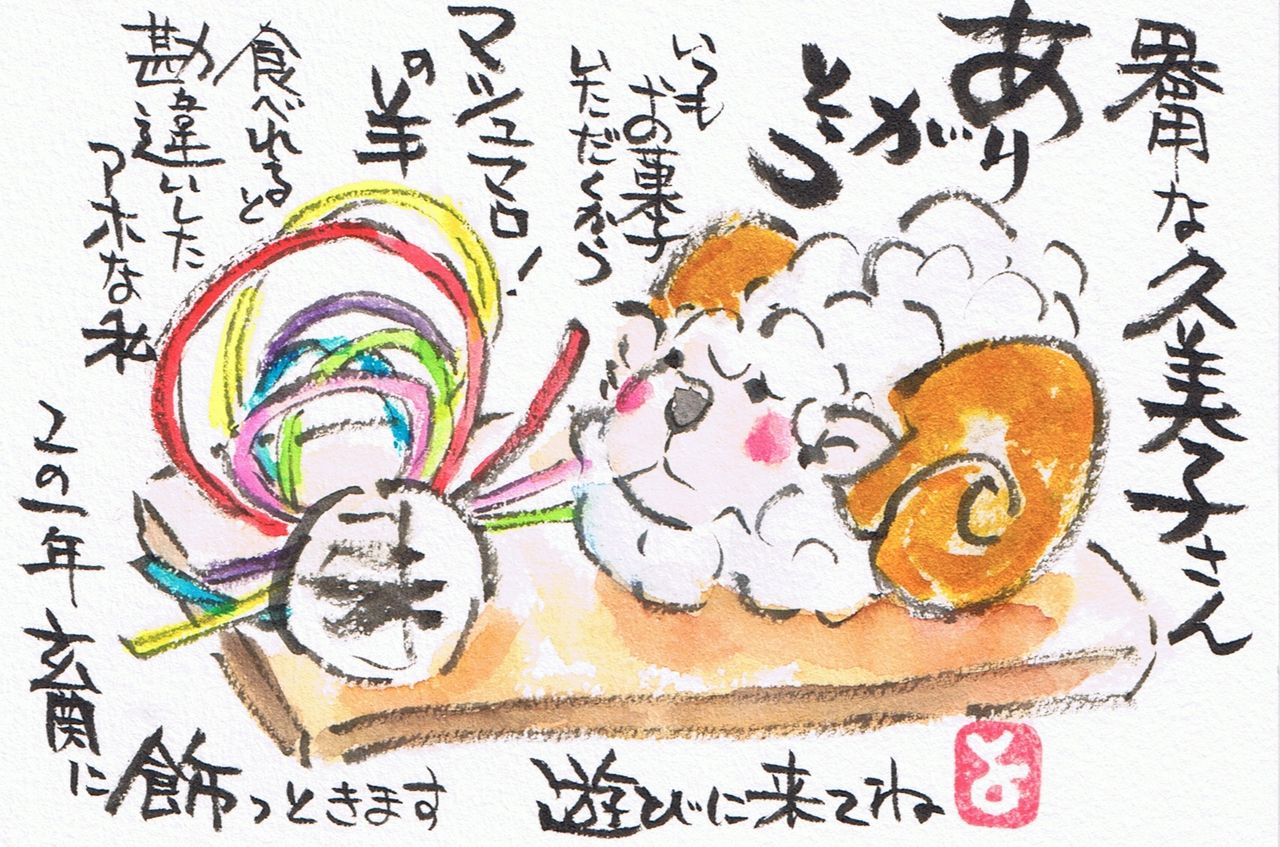 器用な久美子さん
あり
がとう
いつも
お菓子
いただくから
マッシュマロ!
の羊
食べれると
勘違いした
アホな私
この一年 玄関に飾っときます
遊びに来てね
羊